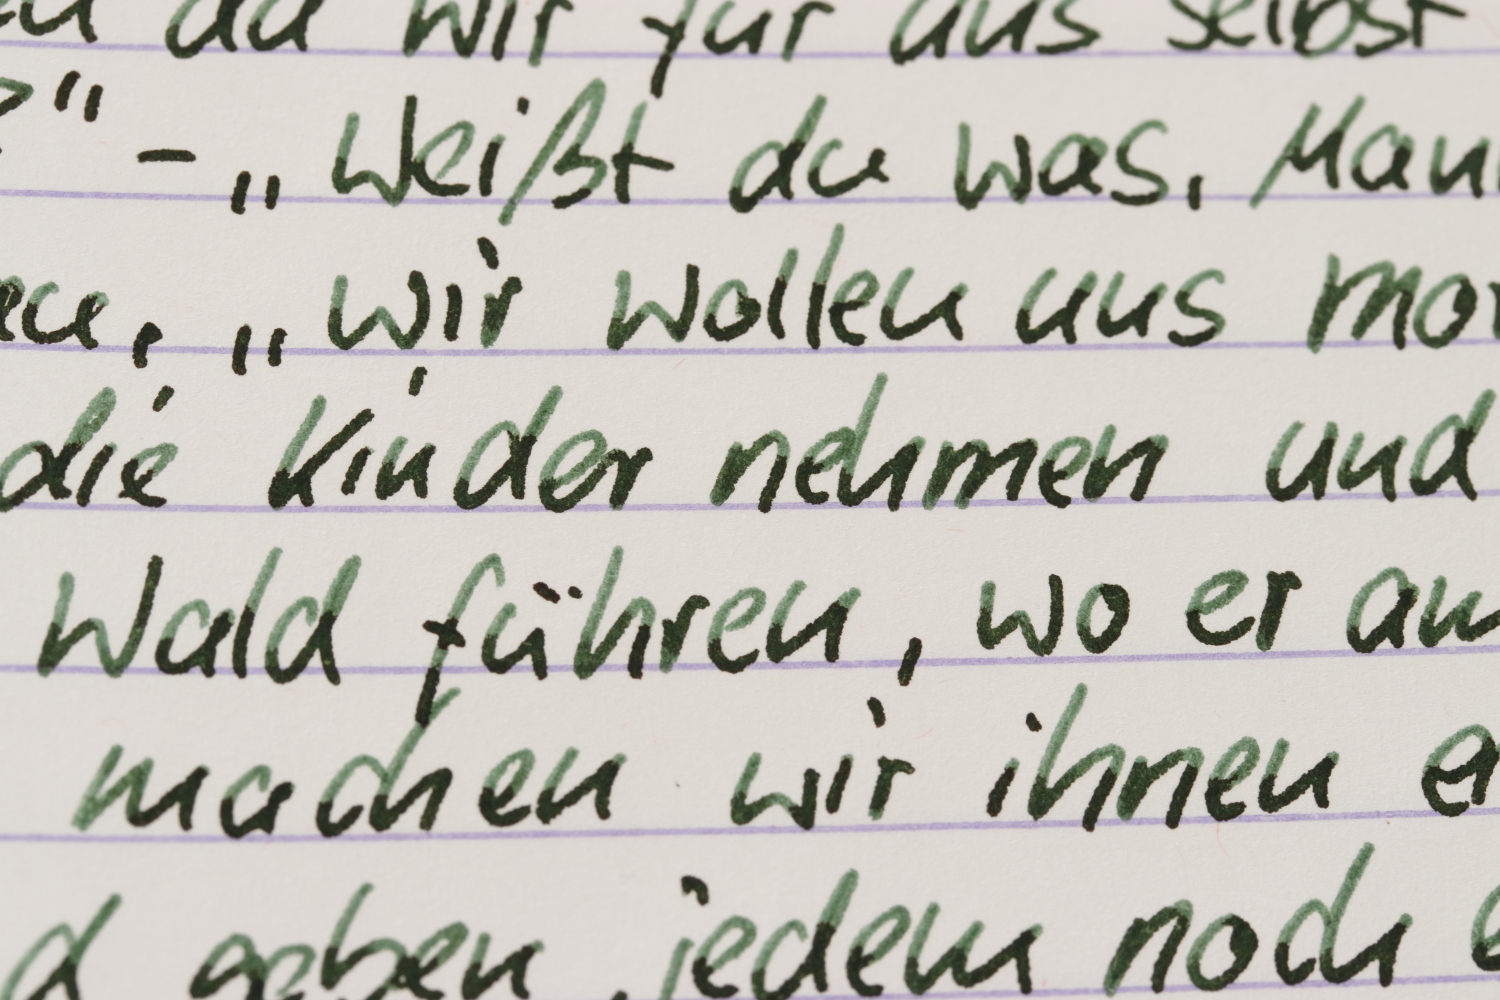 da wir für uns selbst
" – „Weißt du was, Man
en, „wir wollen uns mor
die Kinder nehmen und
Wald führen, wo er am
machen wir ihnen e
d geben jedem noch e